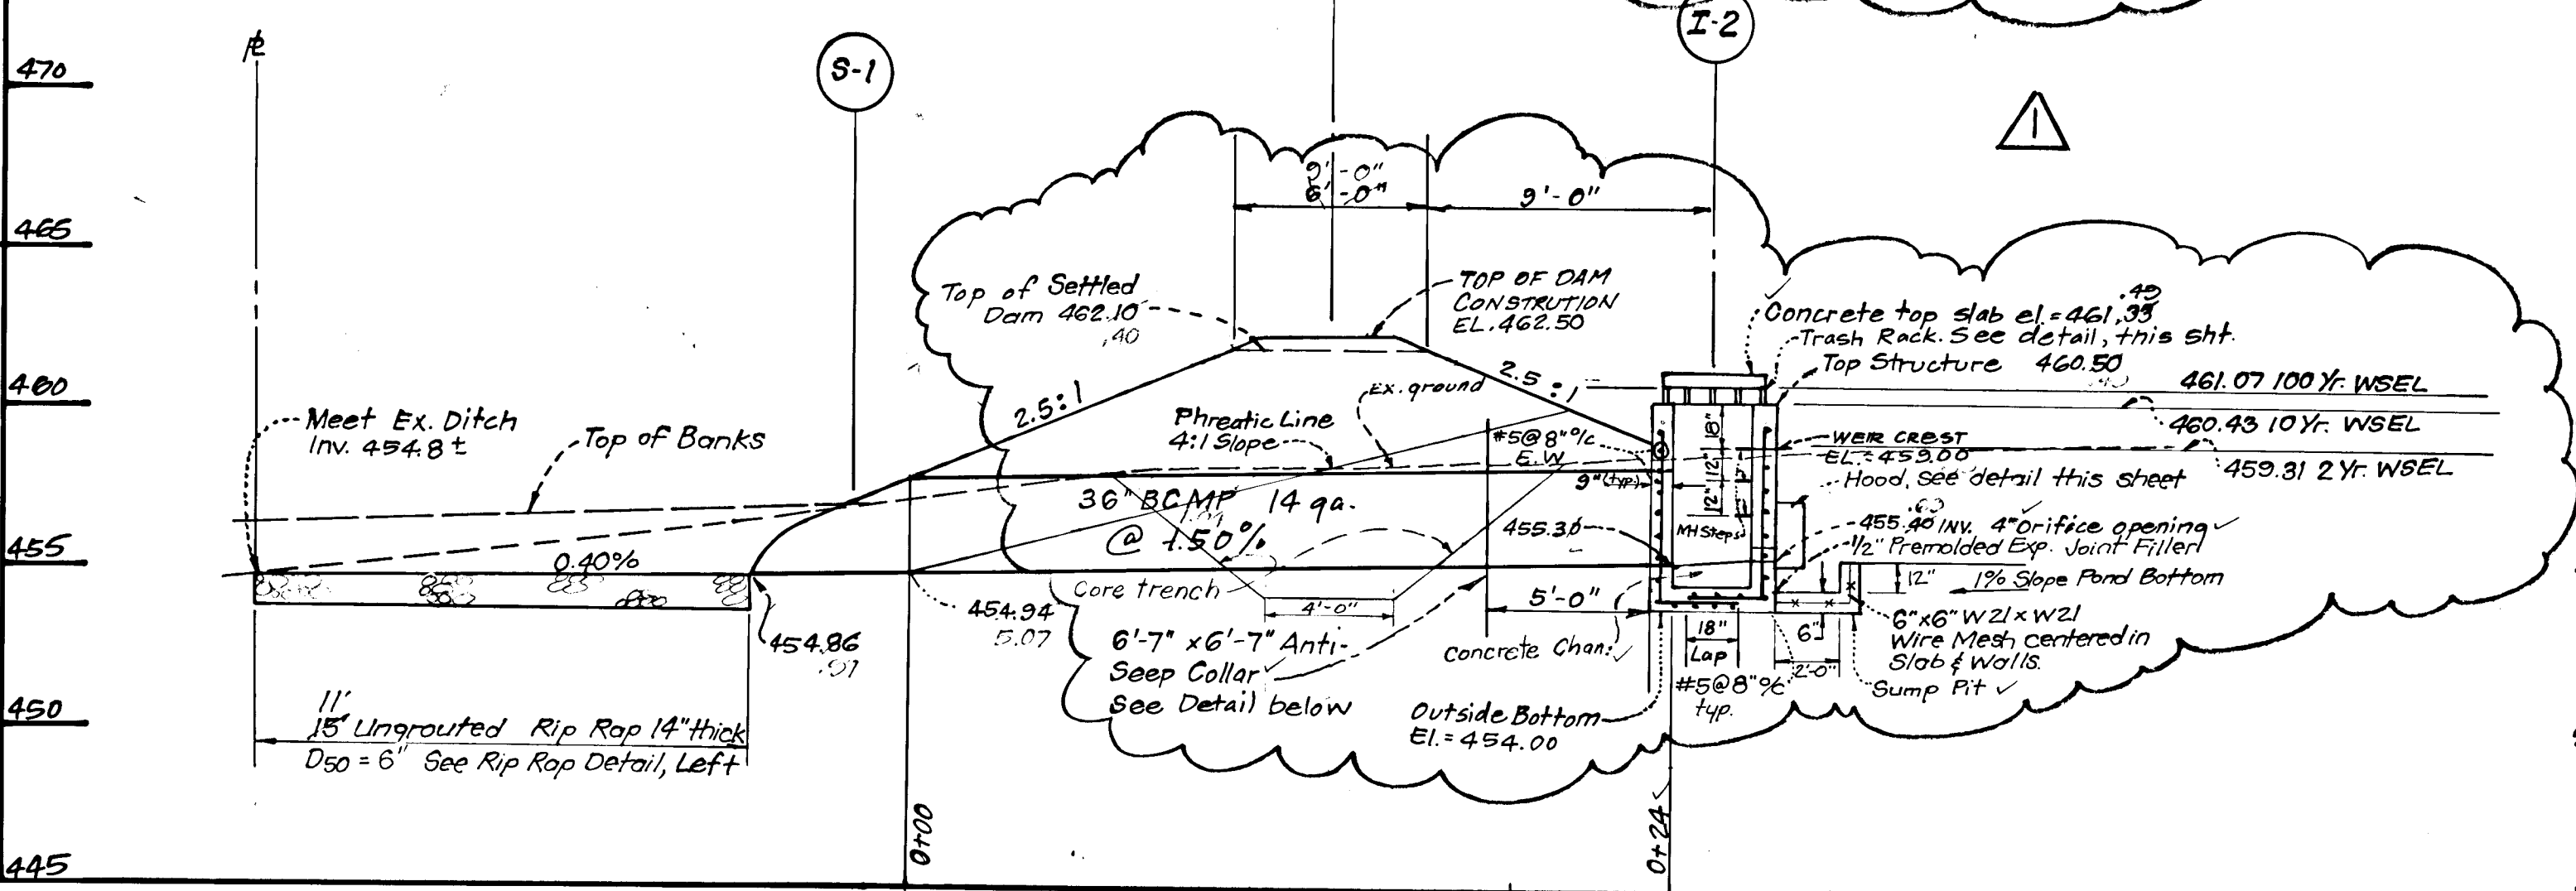 470
465
460
455
450
445
PL
S-1
I-2
1
9'-0"
6'-0"
9'-0"
Top of Settled
Dam 462.10
.40
TOP OF DAM
CONSTRUTION
EL.462.50
.49
Concrete top slab el.=461.33
Trash Rack. See detail, this sht.
Top Structure 460.50
461.07 100 Yr. WSEL
460.43 10 Yr. WSEL
459.31 2 Yr. WSEL
WEIR CREST
EL.=459.00
Hood, see detail this sheet
.60
455.40 INV. 4" Orifice opening
1/2" Premolded Exp. Joint Filler
12"
1% Slope Pond Bottom
6"x6" W21xW21
Wire Mesh centered in
Slab & Walls.
Sump Pit
2'-0"
6"
Meet Ex. Ditch
Inv. 454.8±
Top of Banks
2.5:1
2.5:1
Ex. ground
Phreatic Line
4:1 Slope
#5@8"o/c
E.W.
9"(typ.)
18"
12"
12"
MH Steps
36" BCMP 14 ga.
@ 1.50%
455.30
0.40%
Core trench
4'-0"
5'-0"
Concrete Chan.
18"
Lap
#5@8"o/c
typ.
454.94
5.07
454.86
.97
6'-7" x 6'-7" Anti-
Seep Collar
See Detail below
Outside Bottom
El.=454.00
11'
15' Ungrouted Rip Rap 14" thick
D50 = 6" See Rip Rap Detail, Left
0+00
0+24